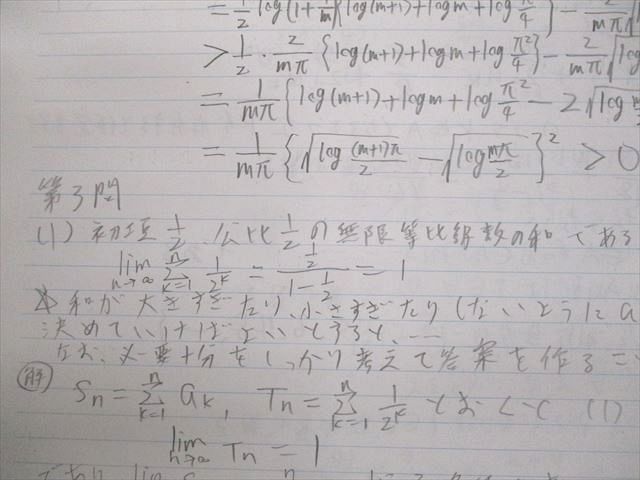 = 1/2 log(1+1/m){log(m+1)+log m+log π²/4} - 2/mπ √
> 1/2 · 2/mπ {log(m+1)+log m+log π²/4} - 2/mπ √log
= 1/mπ {log(m+1)+log m+log π²/4 - 2√log m
= 1/mπ {√log (m+1)π/2 - √log mπ/2}² > 0
第3問
(1) 初項 1/2 、公比 1/2 の無限等比級数の和である
lim n→∞ Σ k=1 n 1/2^k = (1/2)/(1 - 1/2) = 1
和が大きすぎたり、小さすぎたりしないように a
決めていけばよいとすると、…
なお、必要十分をしっかり考えて答案を作るこ
解 Sn = Σ k=1 n ak, Tn = Σ k=1 n 1/2^k とおくと (1)
lim n→∞ Tn = 1
であり lim